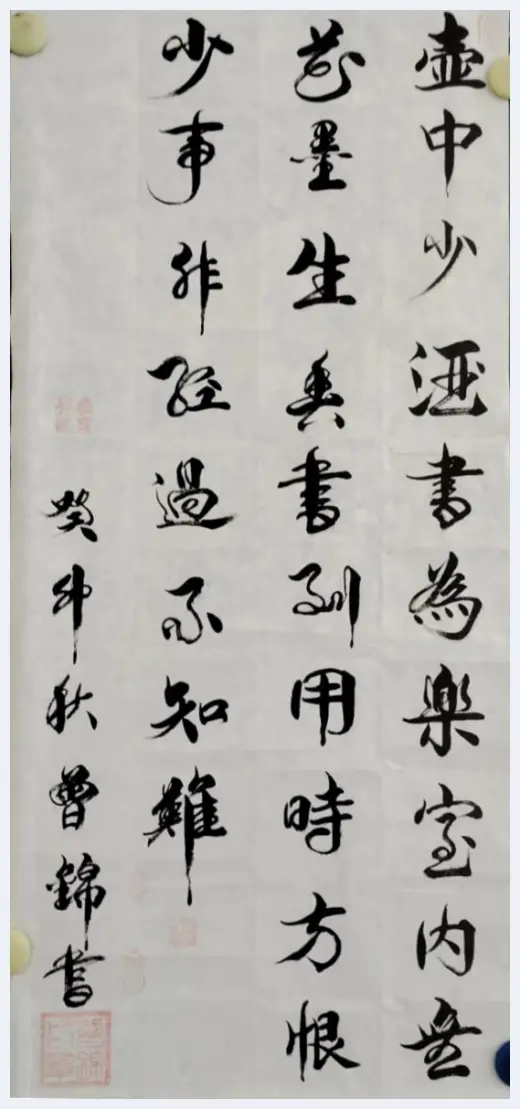 壶中少酒書為樂室内無
花墨生香書到用時方恨
少事非經過不知難
癸卯秋曾錦書